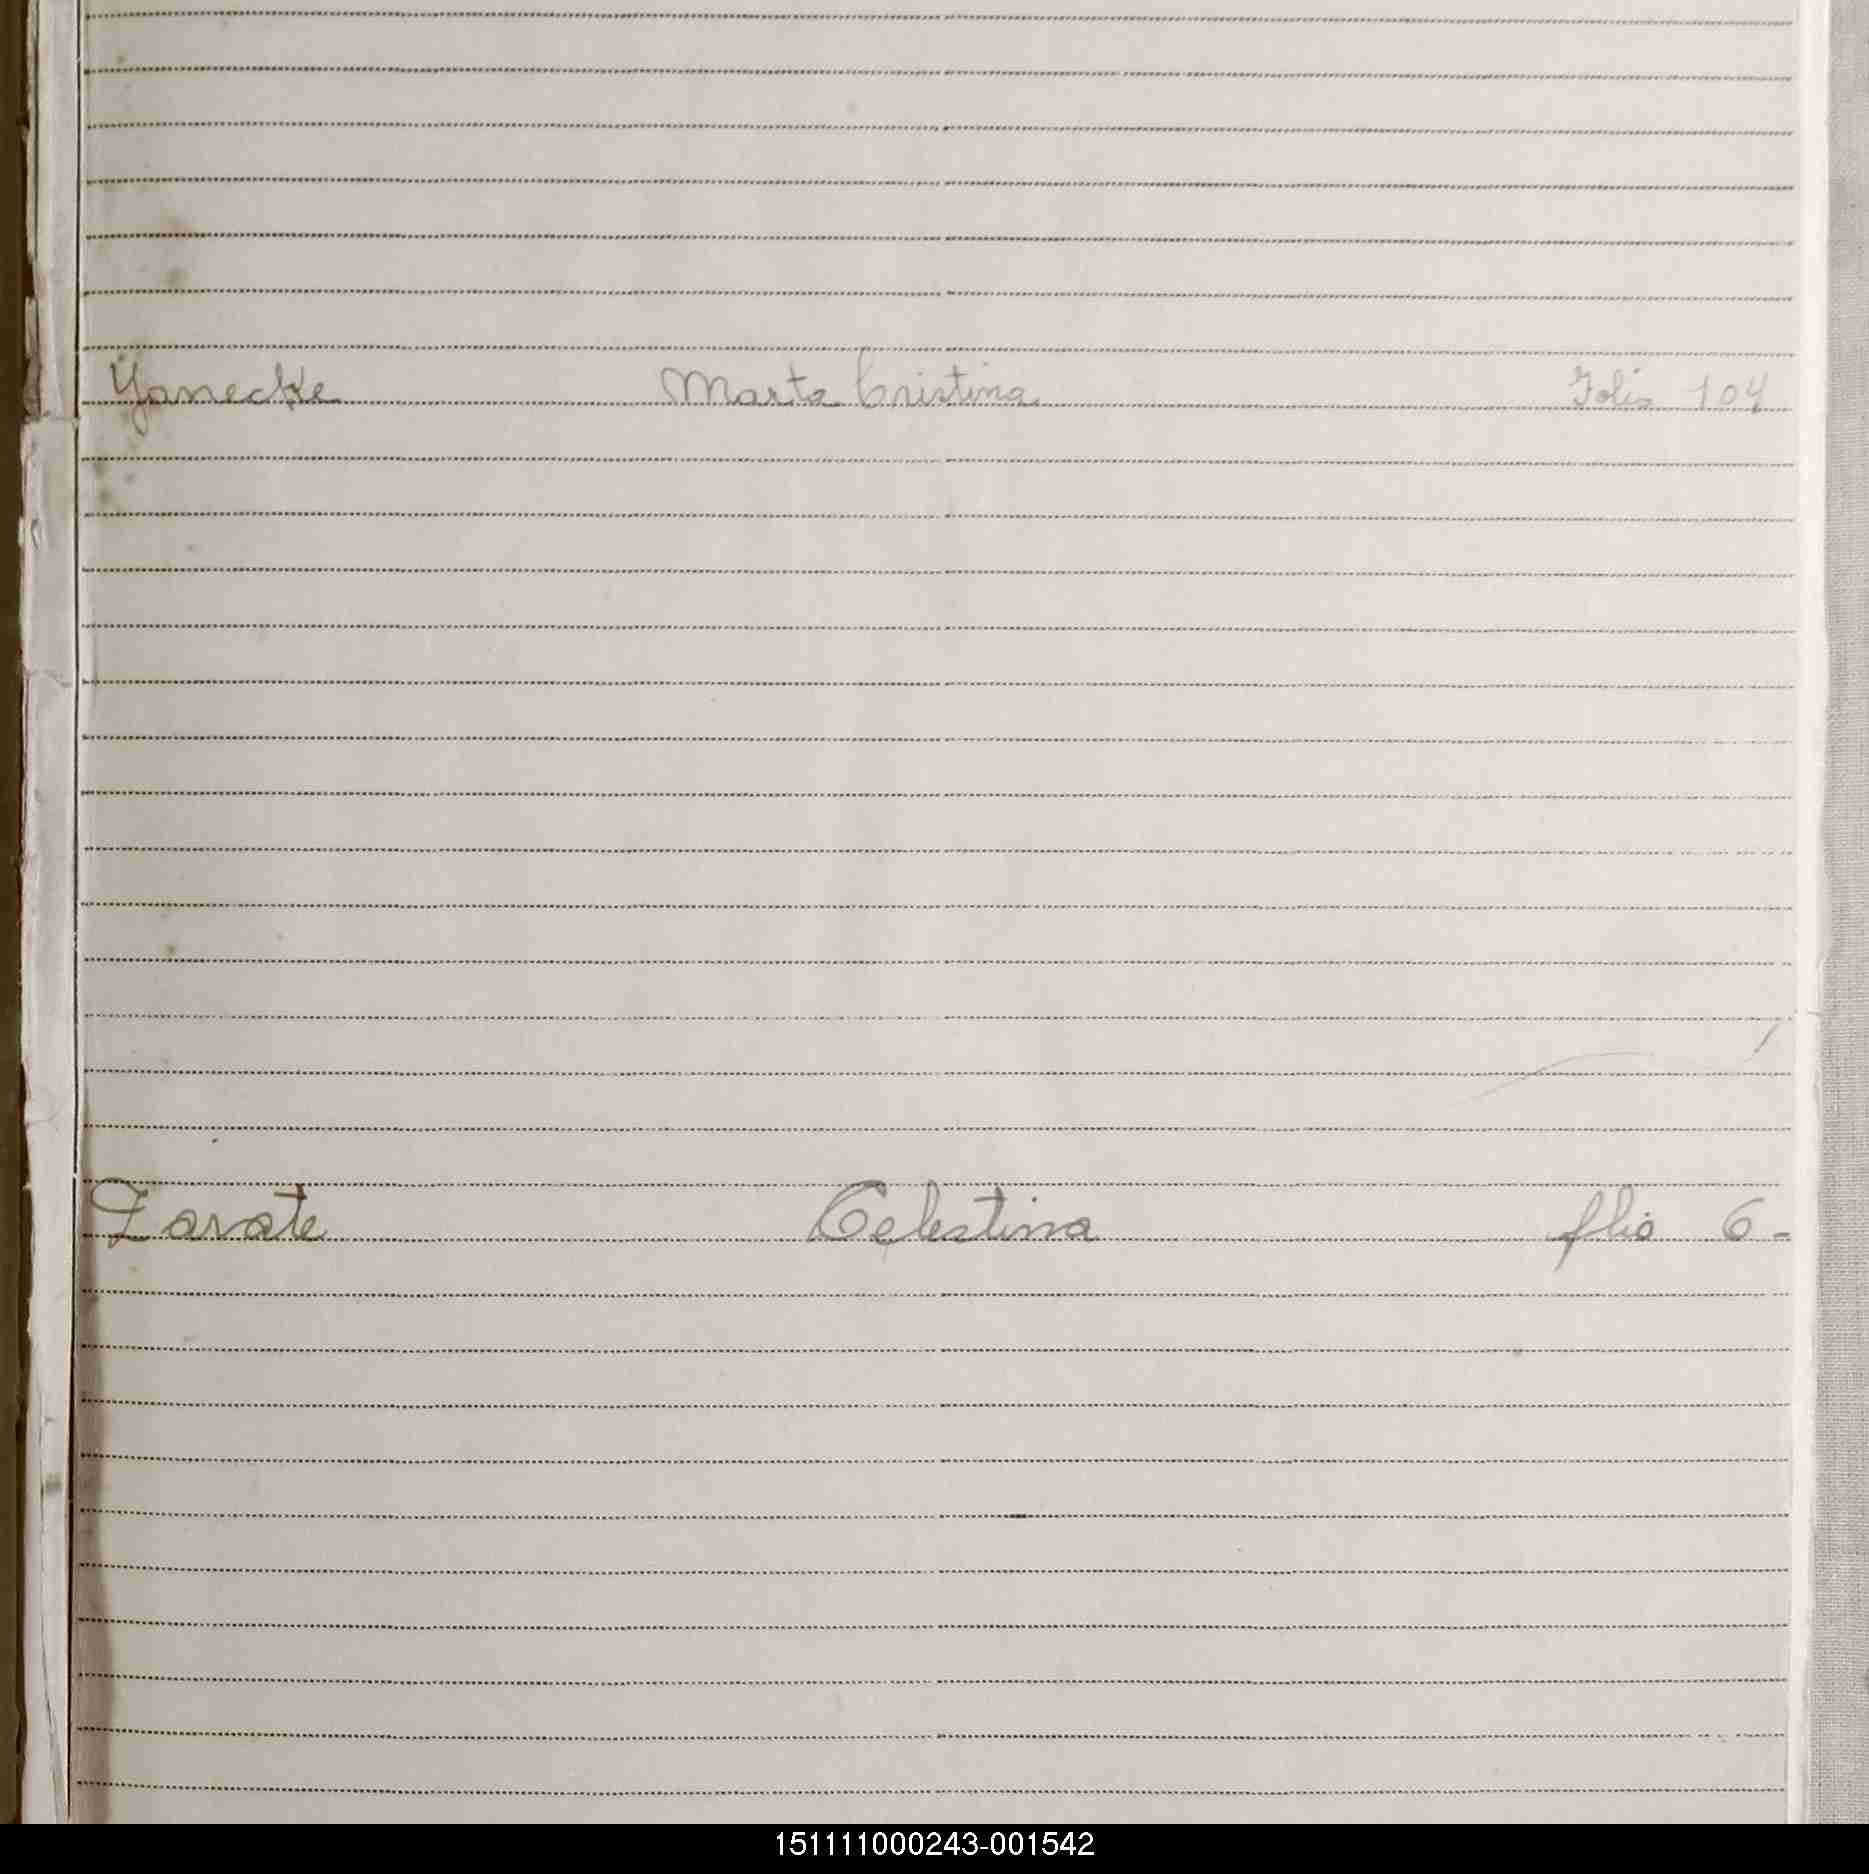 Yanecke Marta Cristina Folio 104
Zarate Celestina flio 6-
151111000243-001542